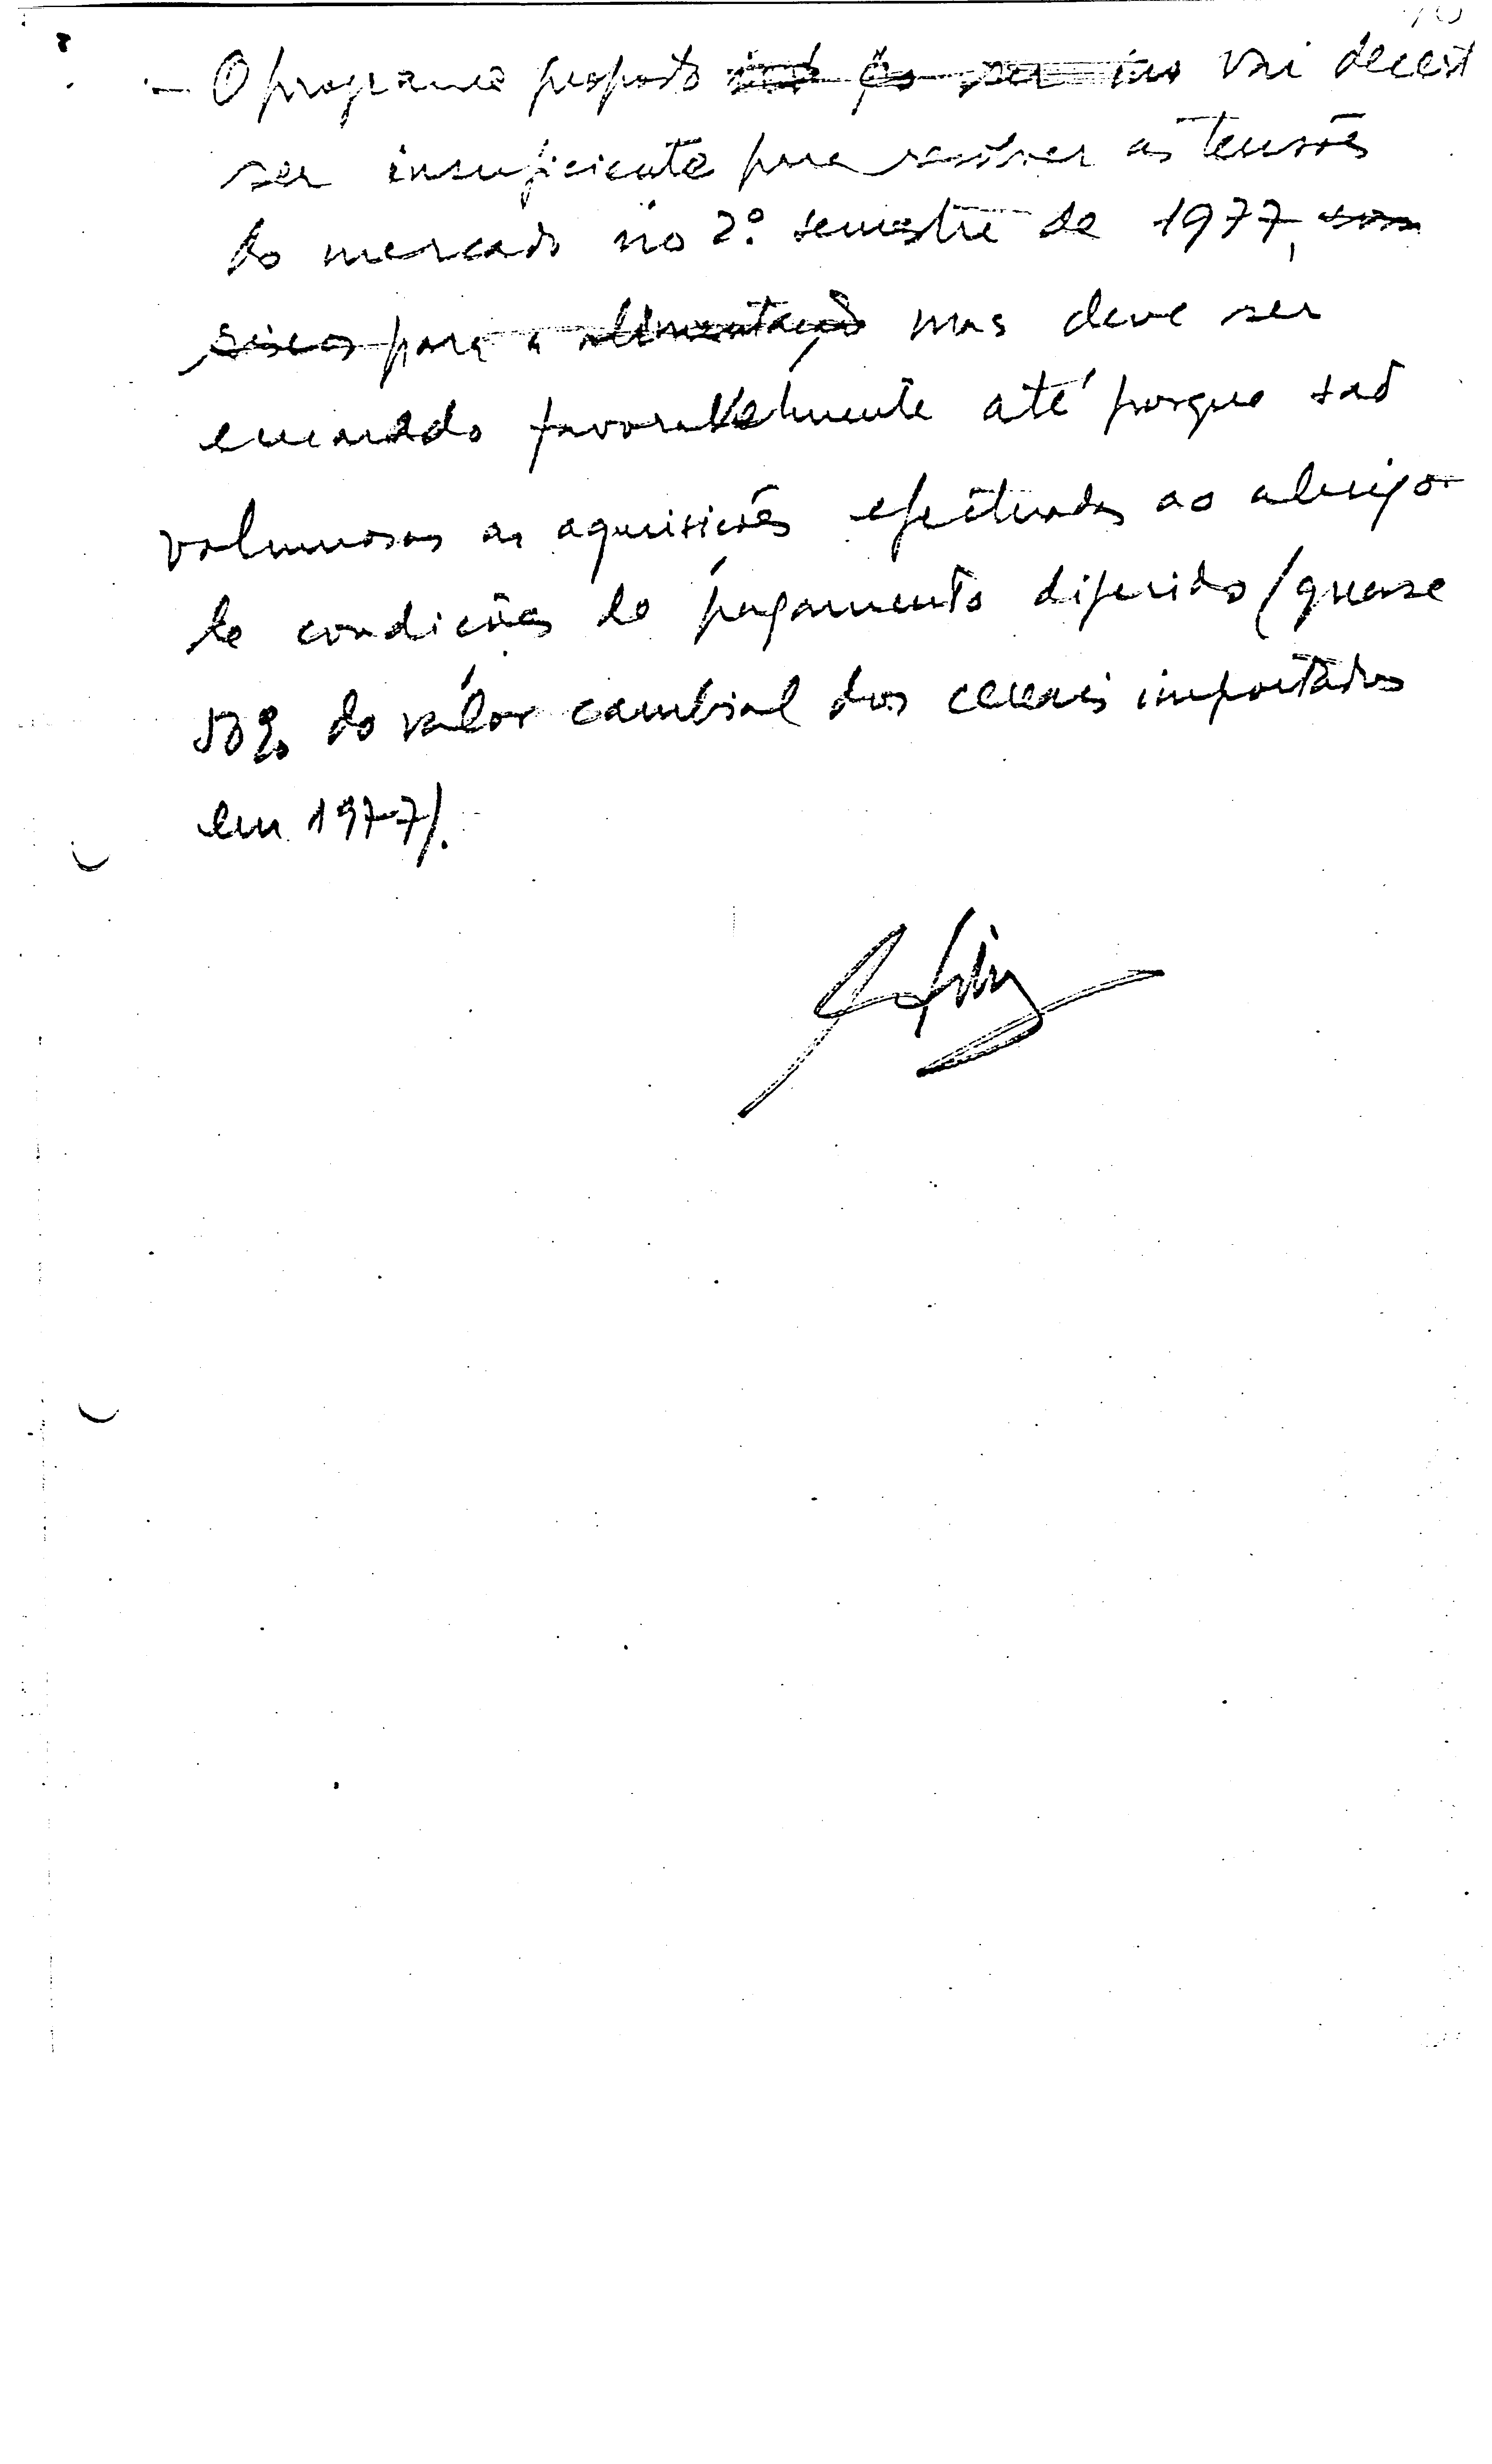 - O programa proposto vai decerto
ser insuficiente para resolver as tensões
do mercado no 2º semestre de 1977,
para a alimentação mas deve ser
encarado favoravelmente até porque são
volumosas as aquisições efectuadas ao abrigo
de condições de pagamento diferido (quase
50% do valor cambial dos cereais importados
em 1977).